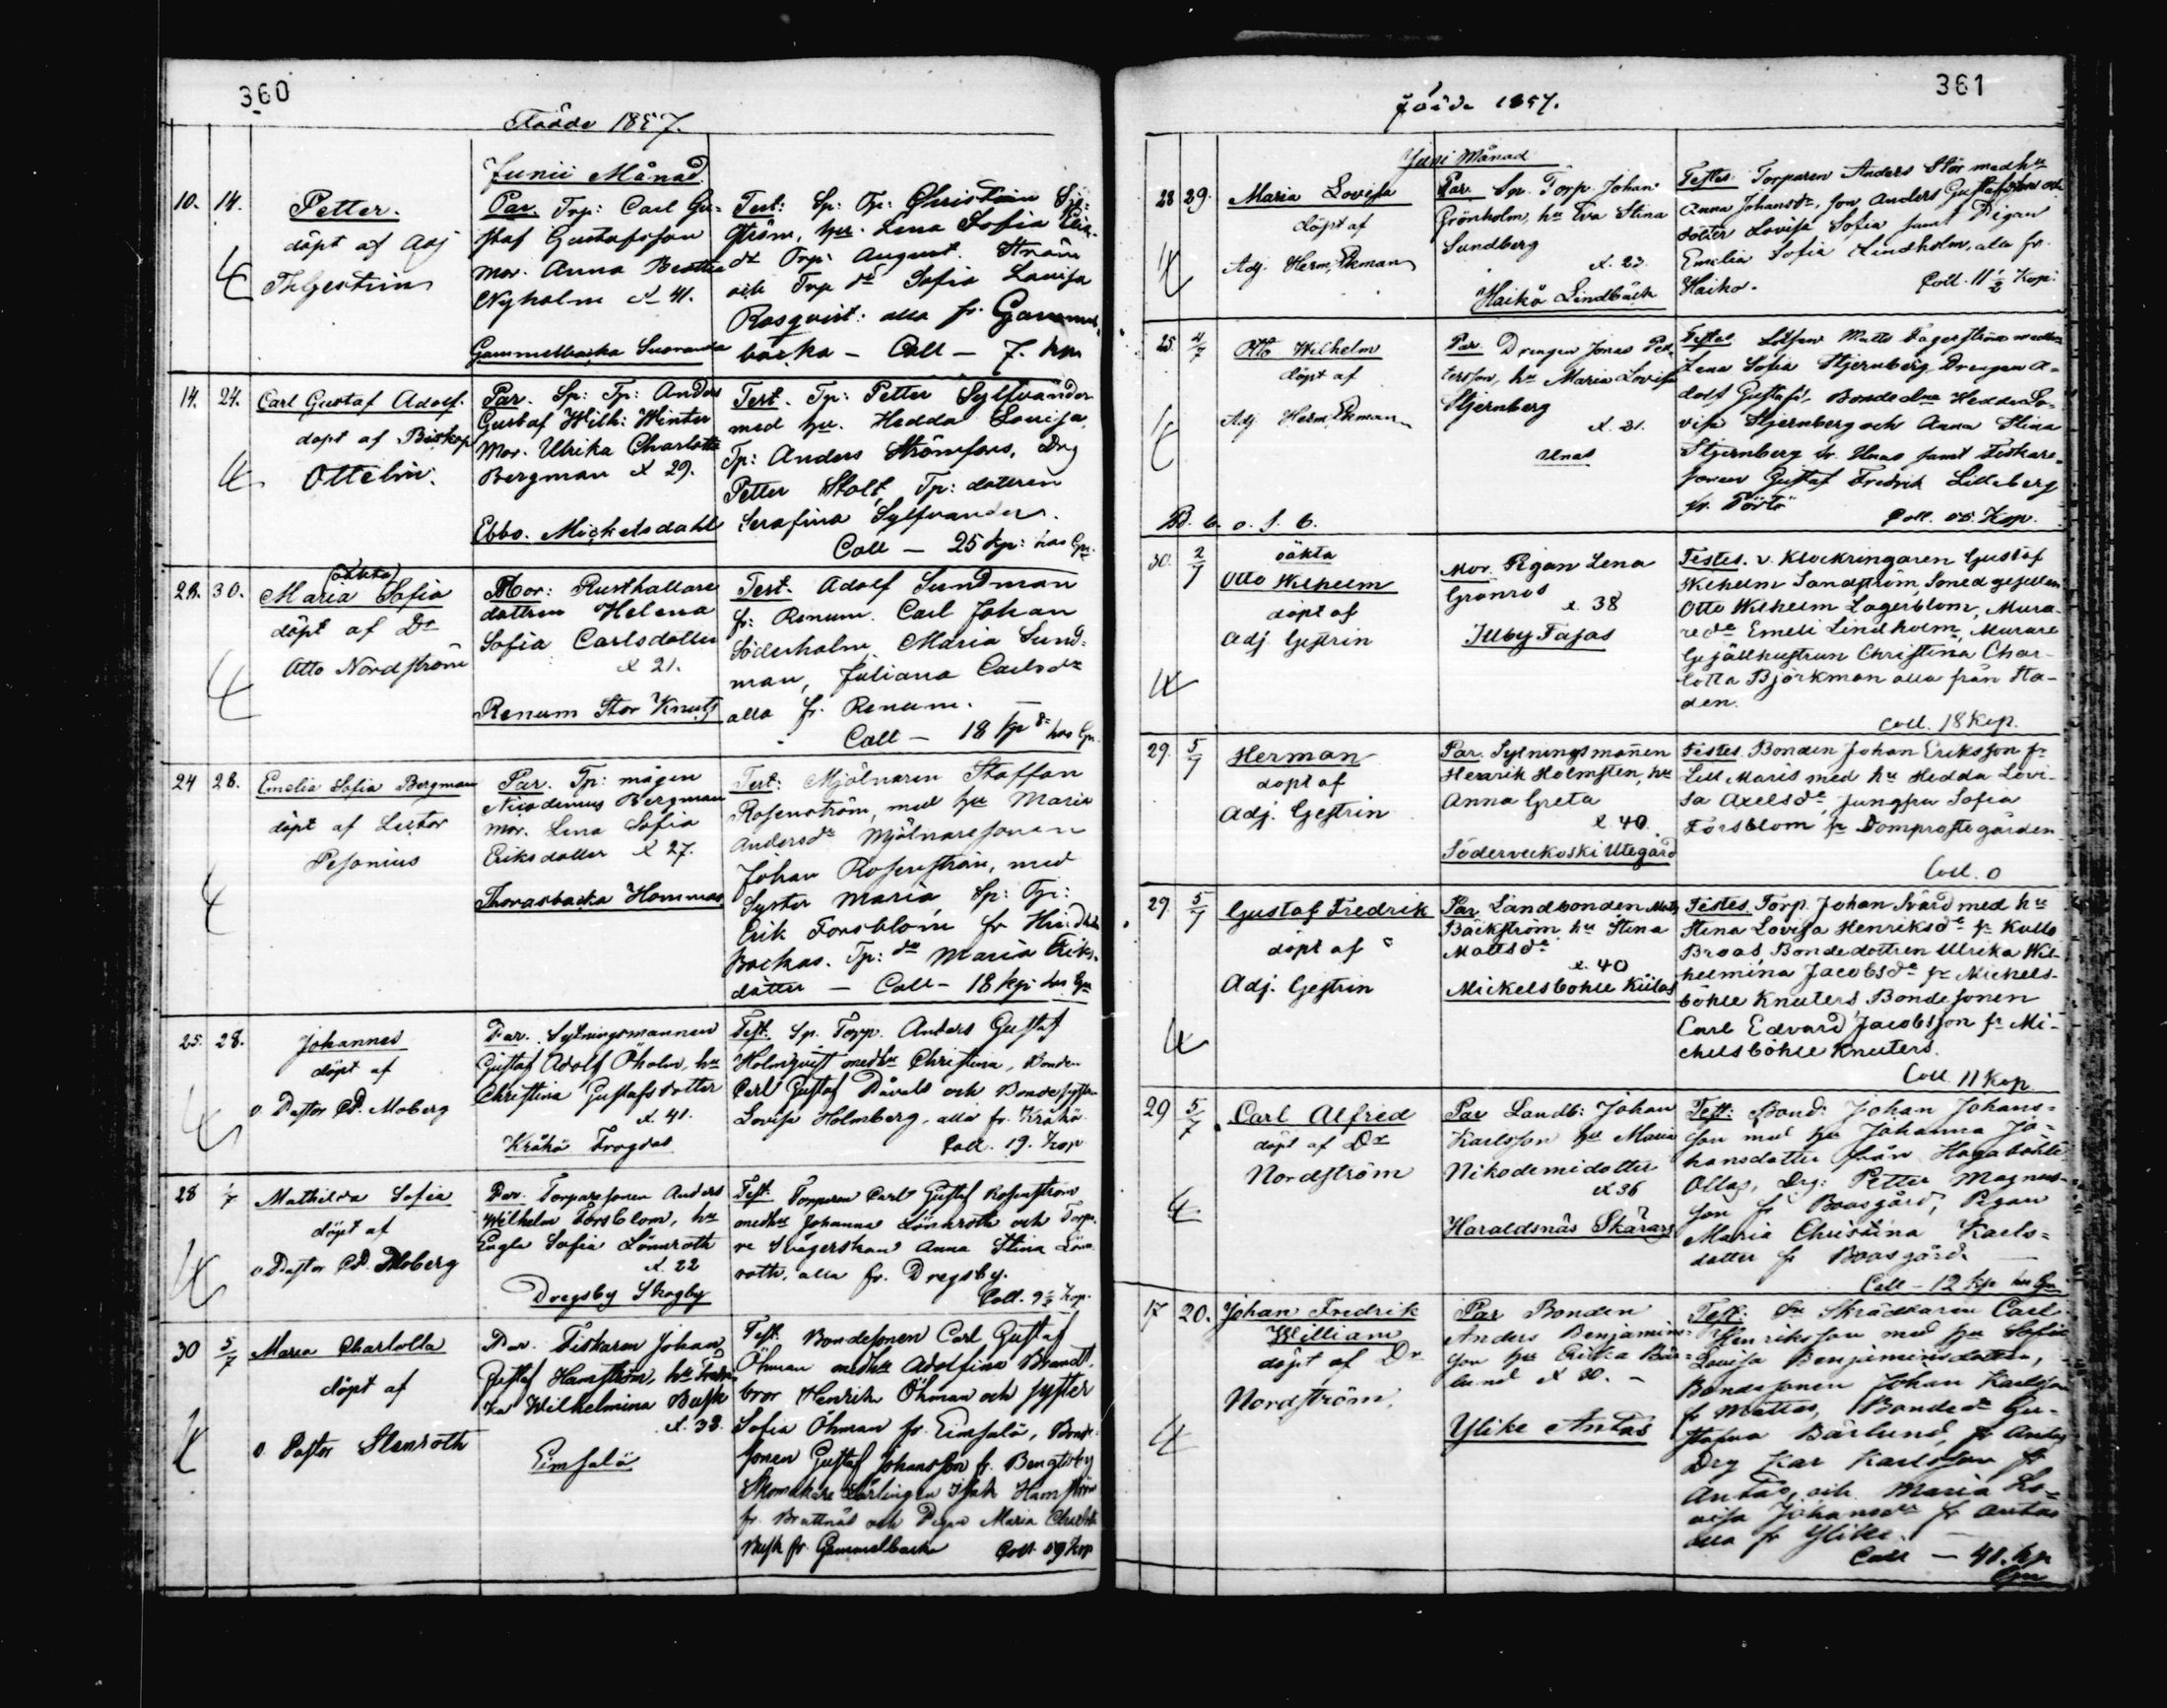 360
Födde 1857.
Junii Månad
10. 14.
Petter.
döpt af Adj
Th Gestrin
Par. Trp: Carl Gu-
staf Gustafsson
Mor. Anna Beatha
Nyholm x 41.
Gammelbacka Suoranda
Test: Sp: Tp: Christian
ström, hu. Lena Sofia
dr Trp: August Ström
och Trp dr Sofia Lovisa
Rosqvist. alla fr. Gammel-
backa — Coll — 7. kop
14. 24.
Carl Gustaf Adolf.
döpt af Biskop
Ottelin.
Par. Sp: Tp: Anders
Gustaf Wilh: Winter
Mor. Ulrika Charlotta
Bergman x 29.
Ebbo. Michelsdahl
Test. Tp: Petter Sylfvander
med hu. Hedda Lovisa,
Tp: Anders Strömfors, Drg
Petter Stolt, Tp: dottren
Serafina Sylfvander.
Coll — 25 kp: hos Gn.
28. 30.
(oäkta)
Maria Sofia
döpt af Dr
Otto Nordström
Mor: Rusthallare
dottren Helena
Sofia Carlsdotter
x 21.
Renum Stor Knuts
Test. Adolf Sundman
fr. Renum. Carl Johan
Söderholm, Maria Sund-
man, Juliana Carlsdr
alla fr. Renum.
Coll — 18 kp hos Gn.
24 28.
Emelia Sofia Bergman
döpt af Lector
Pesonius
Par. Tp: mågen
Nicodemus Bergman
mor. Lena Sofia
Eriksdotter x 27.
Thorasbacka Hommas
Test: Mjölnaren Staffan
Rosenström, med hu Maria
Andersdr Mjölnaresonen
Johan Rosenström, med
Syster Maria Sp: Tp:
Erik Forsblom fr Hindh
Backas. Tp: dr Maria Eriks-
dotter — Coll — 18 kp: hos Gn
25. 28.
Johannes
döpt af
v. Pastor CP. Moberg
Par. Sytningsmannen
Gustaf Adolf Öholm, hu
Christina Gustafsdotter
x. 41.
Kråkö Frogdas
Test. Sp. Torp. Anders Gustaf
Holmqvist med hu Christina, Bonden
Carl Gustaf Davald och Bondesystern
Lovisa Holmberg, alla fr. Kråkö
Coll. 19. Kop
28 1/7
Mathilda Sofia
döpt af
v Pastor CP. Moberg
Par. Torparesonen Anders
Wilhelm Forsblom, hu
Engla Sofia Lönnroth
x. 22
Dregsby Skogby
Test. Torparen Carl Gustaf Rosenström
med hu Johanna Lönnroth och Torpa-
re Svägerskan Anna Stina Lönn-
roth, alla fr. Dregsby.
Coll. 9 1/2 Kop.
30 5/7
Maria Charlotta
döpt af
v. Pastor Stenroth
Par. Fiskaren Johan
Gustaf Hamström, hu Fredri-
ka Wilhelmina Busk
x. 38.
Eimsalö
Test. Bondesonen Carl Gustaf
Öhman med hu Adolfina Brandt,
bror Henrik Öhman och syster
Sofia Öhman fr. Eimsalö, Bonde-
sonen Gustaf Johansson fr. Bengtsby
Skomakare Lärlingen Isak Hamström
fr. Brattnäs och Pigan Maria Charlotta
Busk fr. Gammelbacka Coll. 59 Kop
361
Födde 1857.
Juni Månad
28 29.
Maria Lovisa
döpt af
Adj. Herm. Ekman
Par. Sp. Torp. Johan
Grönholm, hu Eva Stina
Sundberg
x. 23.
Haikå Lindbäck
Testes. Torparen Anders Stör med hu
Anna Johansdr, son Anders Gustafsson och
dotter Lovisa Sofia samt Pigan
Emelia Sofia Lindholm, alla fr.
Haiko. Coll. 11 1/2 Kop.
25. 4/7
Otto Wilhelm
döpt af
Adj. Herm. Ekman
Par. Drengen Jonas Pet-
tersson, hu Maria Lovisa
Stjernberg
x. 21.
Unas
Testes Lotsen Matts Fagerström med hu
Lena Sofia Stjernberg, Drengen A-
dolf Gustafs, Bondedrna Hedda Lo-
visa Stjernberg och Anna Stina
Stjernberg fr. Unas samt Fiskare-
sonen Gustaf Fredrik Lilleberg
fr. Pörtö Coll. 05. Kop.
Bd. b. o. s. b.
30. 2/7
oäkta
Otto Wilhelm
döpt af
Adj. Gestrin
Mor. Pigan Lena
Grönros
x. 38
Illby Fasas
Testes. v. Klockringaren Gustaf
Wilhelm Sandström, Smedgesellen
Otto Wilhelm Lagerblom, Mura-
redr Emeli Lindholm, Murare
Gesällhustrun Christina Char-
lotta Björkman alla från Sta-
den.
Coll. 18 Kop.
29. 5/7
Herman
döpt af
Adj. Gestrin
Par. Sytningsmanen
Henrik Holmsten, hu
Anna Greta
x. 40.
Söderveckoski Utegård
Testes. Bonden Johan Eriksson fr
Lill Maris med hu Hedda Lovi-
sa Axelsdr, Jungfru Sofia
Forsblom fr Domprostegården
Coll. 0
29. 5/7
Gustaf Fredrik
döpt af
Adj. Gestrin
Par. Landbonden Matts
Bäckström hu Stina
Mattsdr
x. 40
Mickelsböhle Kiilas
Testes. Torp. Johan Svärd med hu
Stina Lovisa Henriksdr fr Kullo
Broas, Bondedottren Ulrika Wil-
helmina Jacobsdr fr Michels-
böhle Knuters Bondesonen
Carl Edvard Jacobsson fr Mi-
chelsböhle Knuters.
Coll 11 Kop
29 5/7
Carl Alfred
döpt af Dr
Nordström
Par Landb: Johan
Karlsson hu Maria
Nikodemidotter
x 36
Haraldsnäs Skärars
Test: Bond: Johan Johans-
son med hu Johanna Jo-
hansdotter från Hagaböhle
Ollas, Drg: Petter Magnus-
son fr Boasgård, Pigan
Maria Christina Karls-
dotter fr Boasgård.
Coll — 12 kp hos Gn
17 20.
Johan Fredrik
William
döpt af Dr
Nordström.
Par Bonden
Anders Benjamins-
son hu Erika Bär-
lund x 30. —
Ylike Antas
Test: Skräddaren Carl
Henriksson med hu Sofia
Lovisa Benjaminsdotter,
Bondesonen Johan Karlsson
fr Mattas, Bondedr Gu-
stafva Bärlund, fr Antas
Drg Kar Karlsson fr
Antas, och Maria Lo-
visa Johansdr fr Antas
alla fr Ylike. —
Coll — 41. kp
Gn